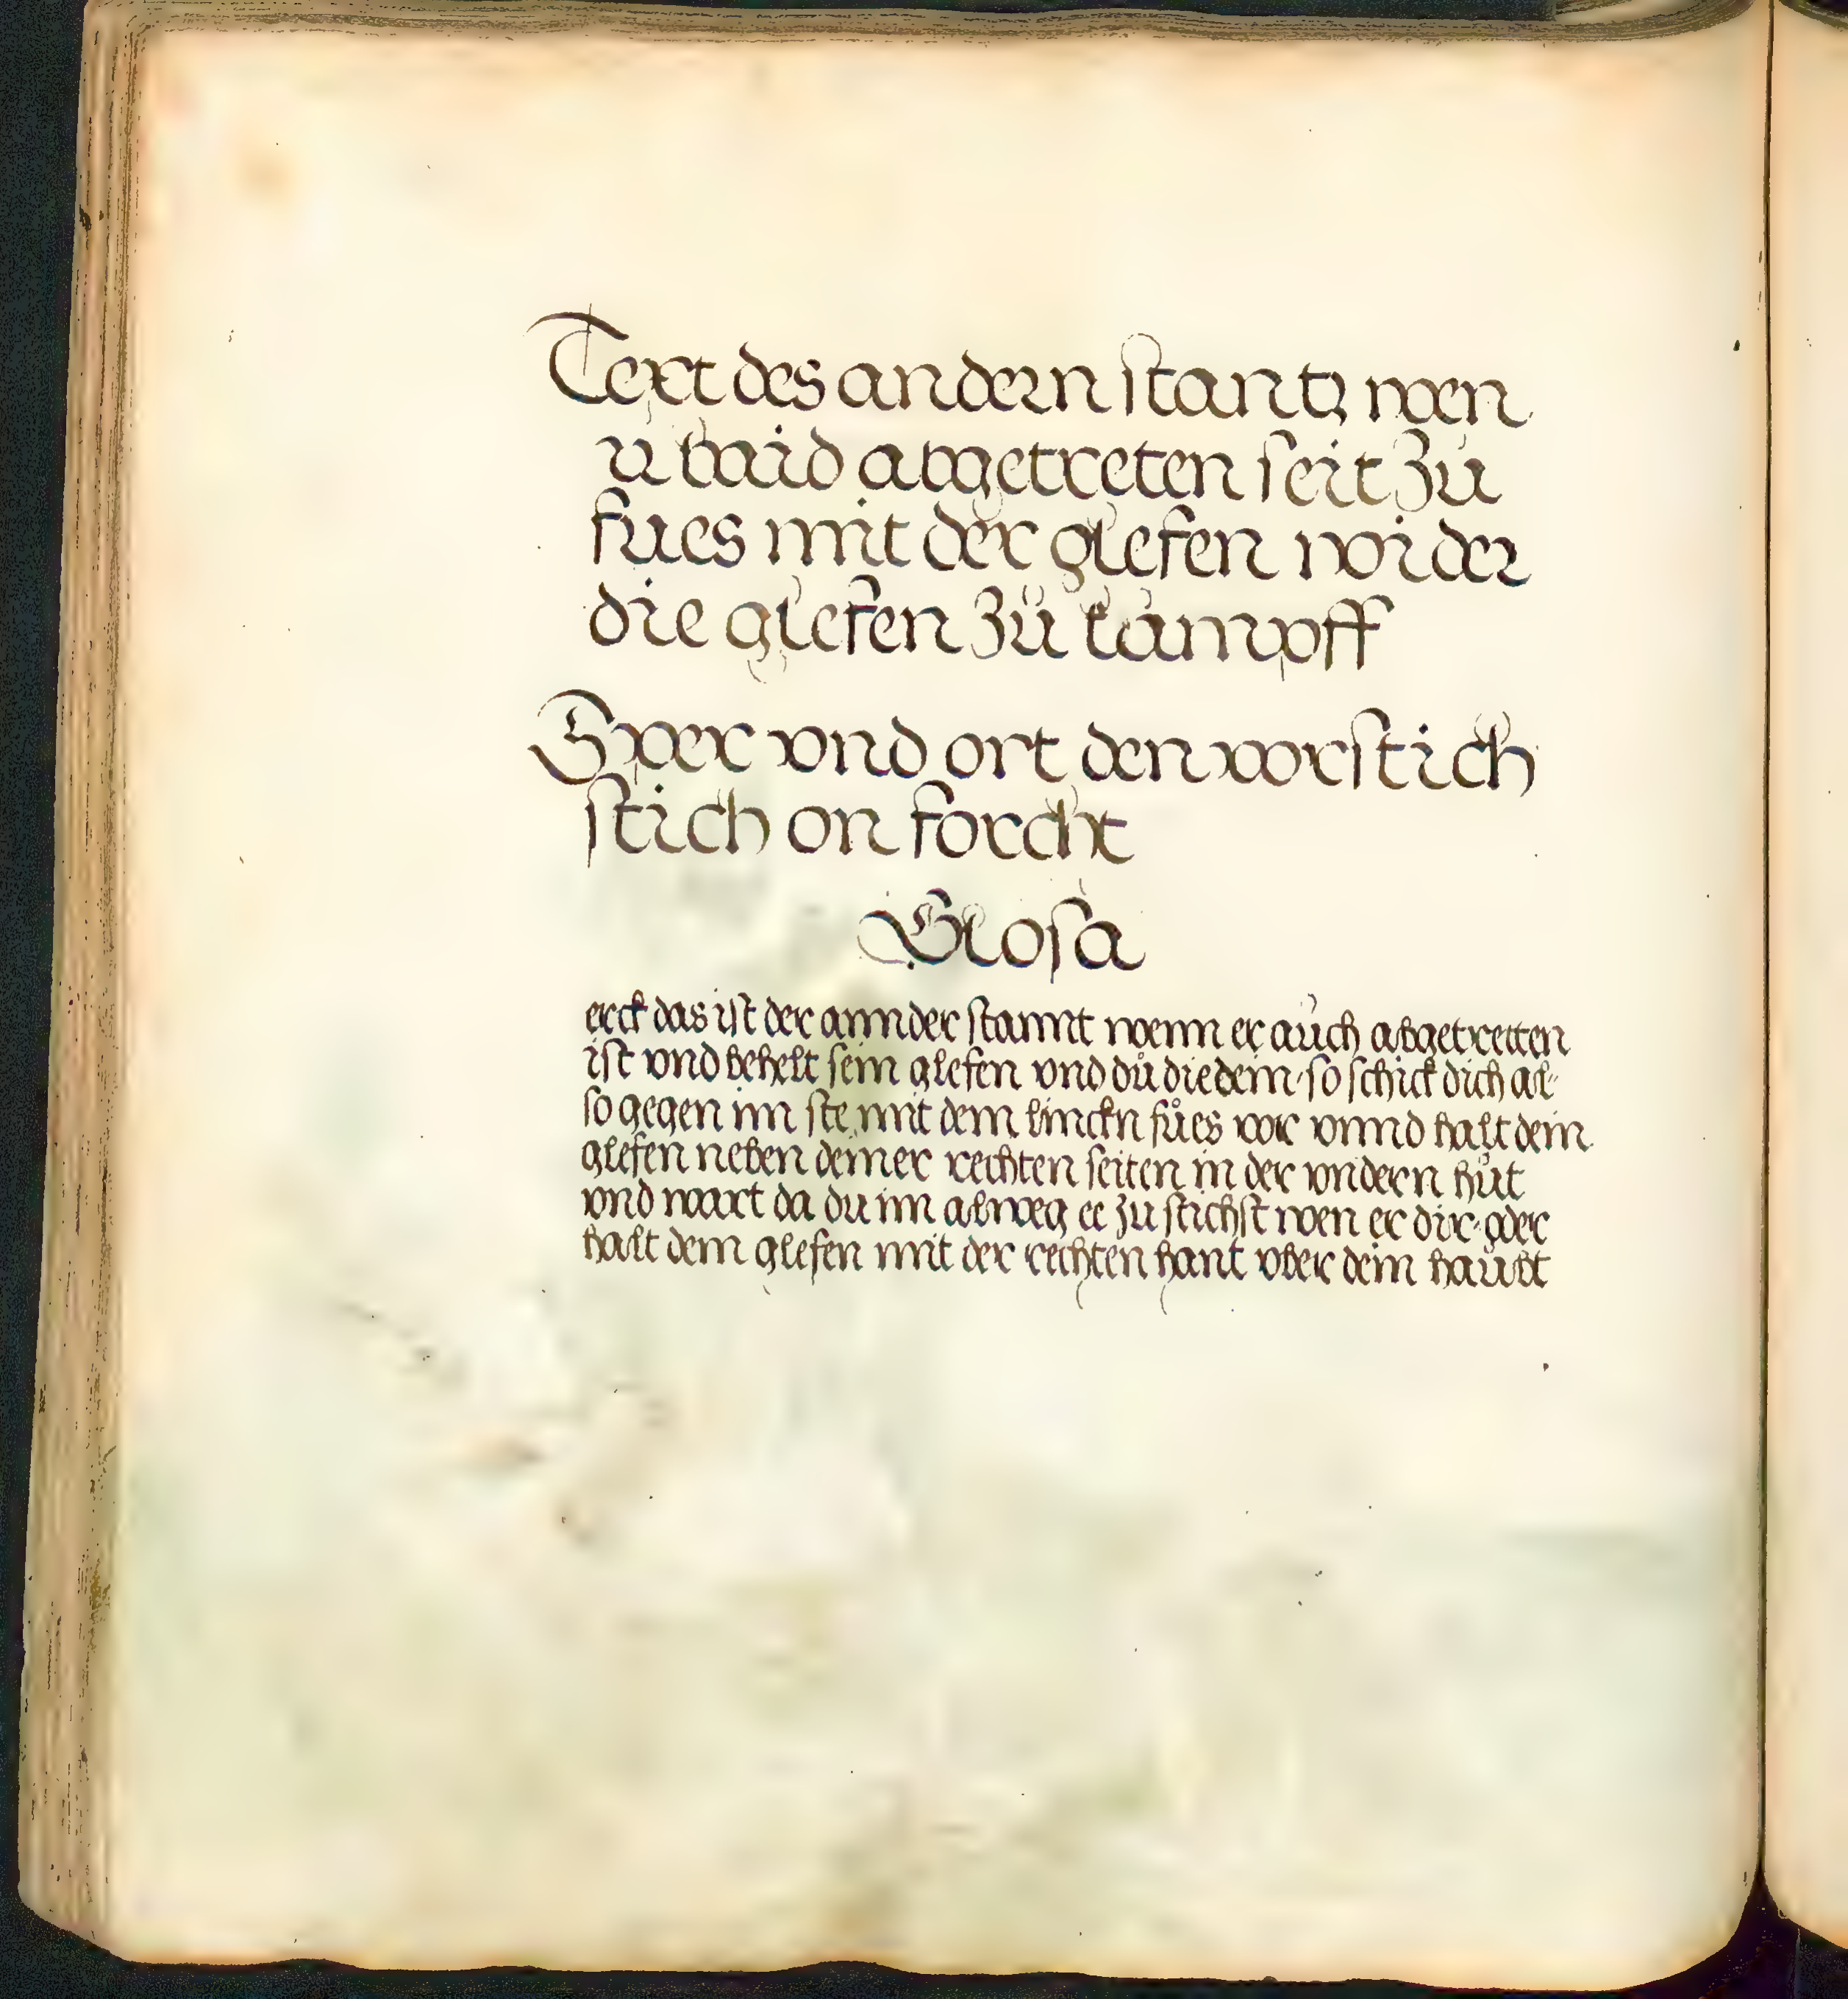 Text des andern stantz wen
ir baid abgetreten seit zů
fues mit der glefen wider
die glefen zů kampff
Sper vnd ort den vorstich
stich on forcht
Glosa
erck das ist der annder stannt wenn er aůch abgetretten
ist vnd behelt sein glefen vnd dů die dein· so schick dich al-
so gegen im ste mit dem linckn fůes vor vnnd halt dein
glefen neben deiner rechten seiten in der vndern hůt
vnd wart da du im alweg ee zu stichst wen er dir· oder
halt dein glefen mit der rechten hant vber dein haubt